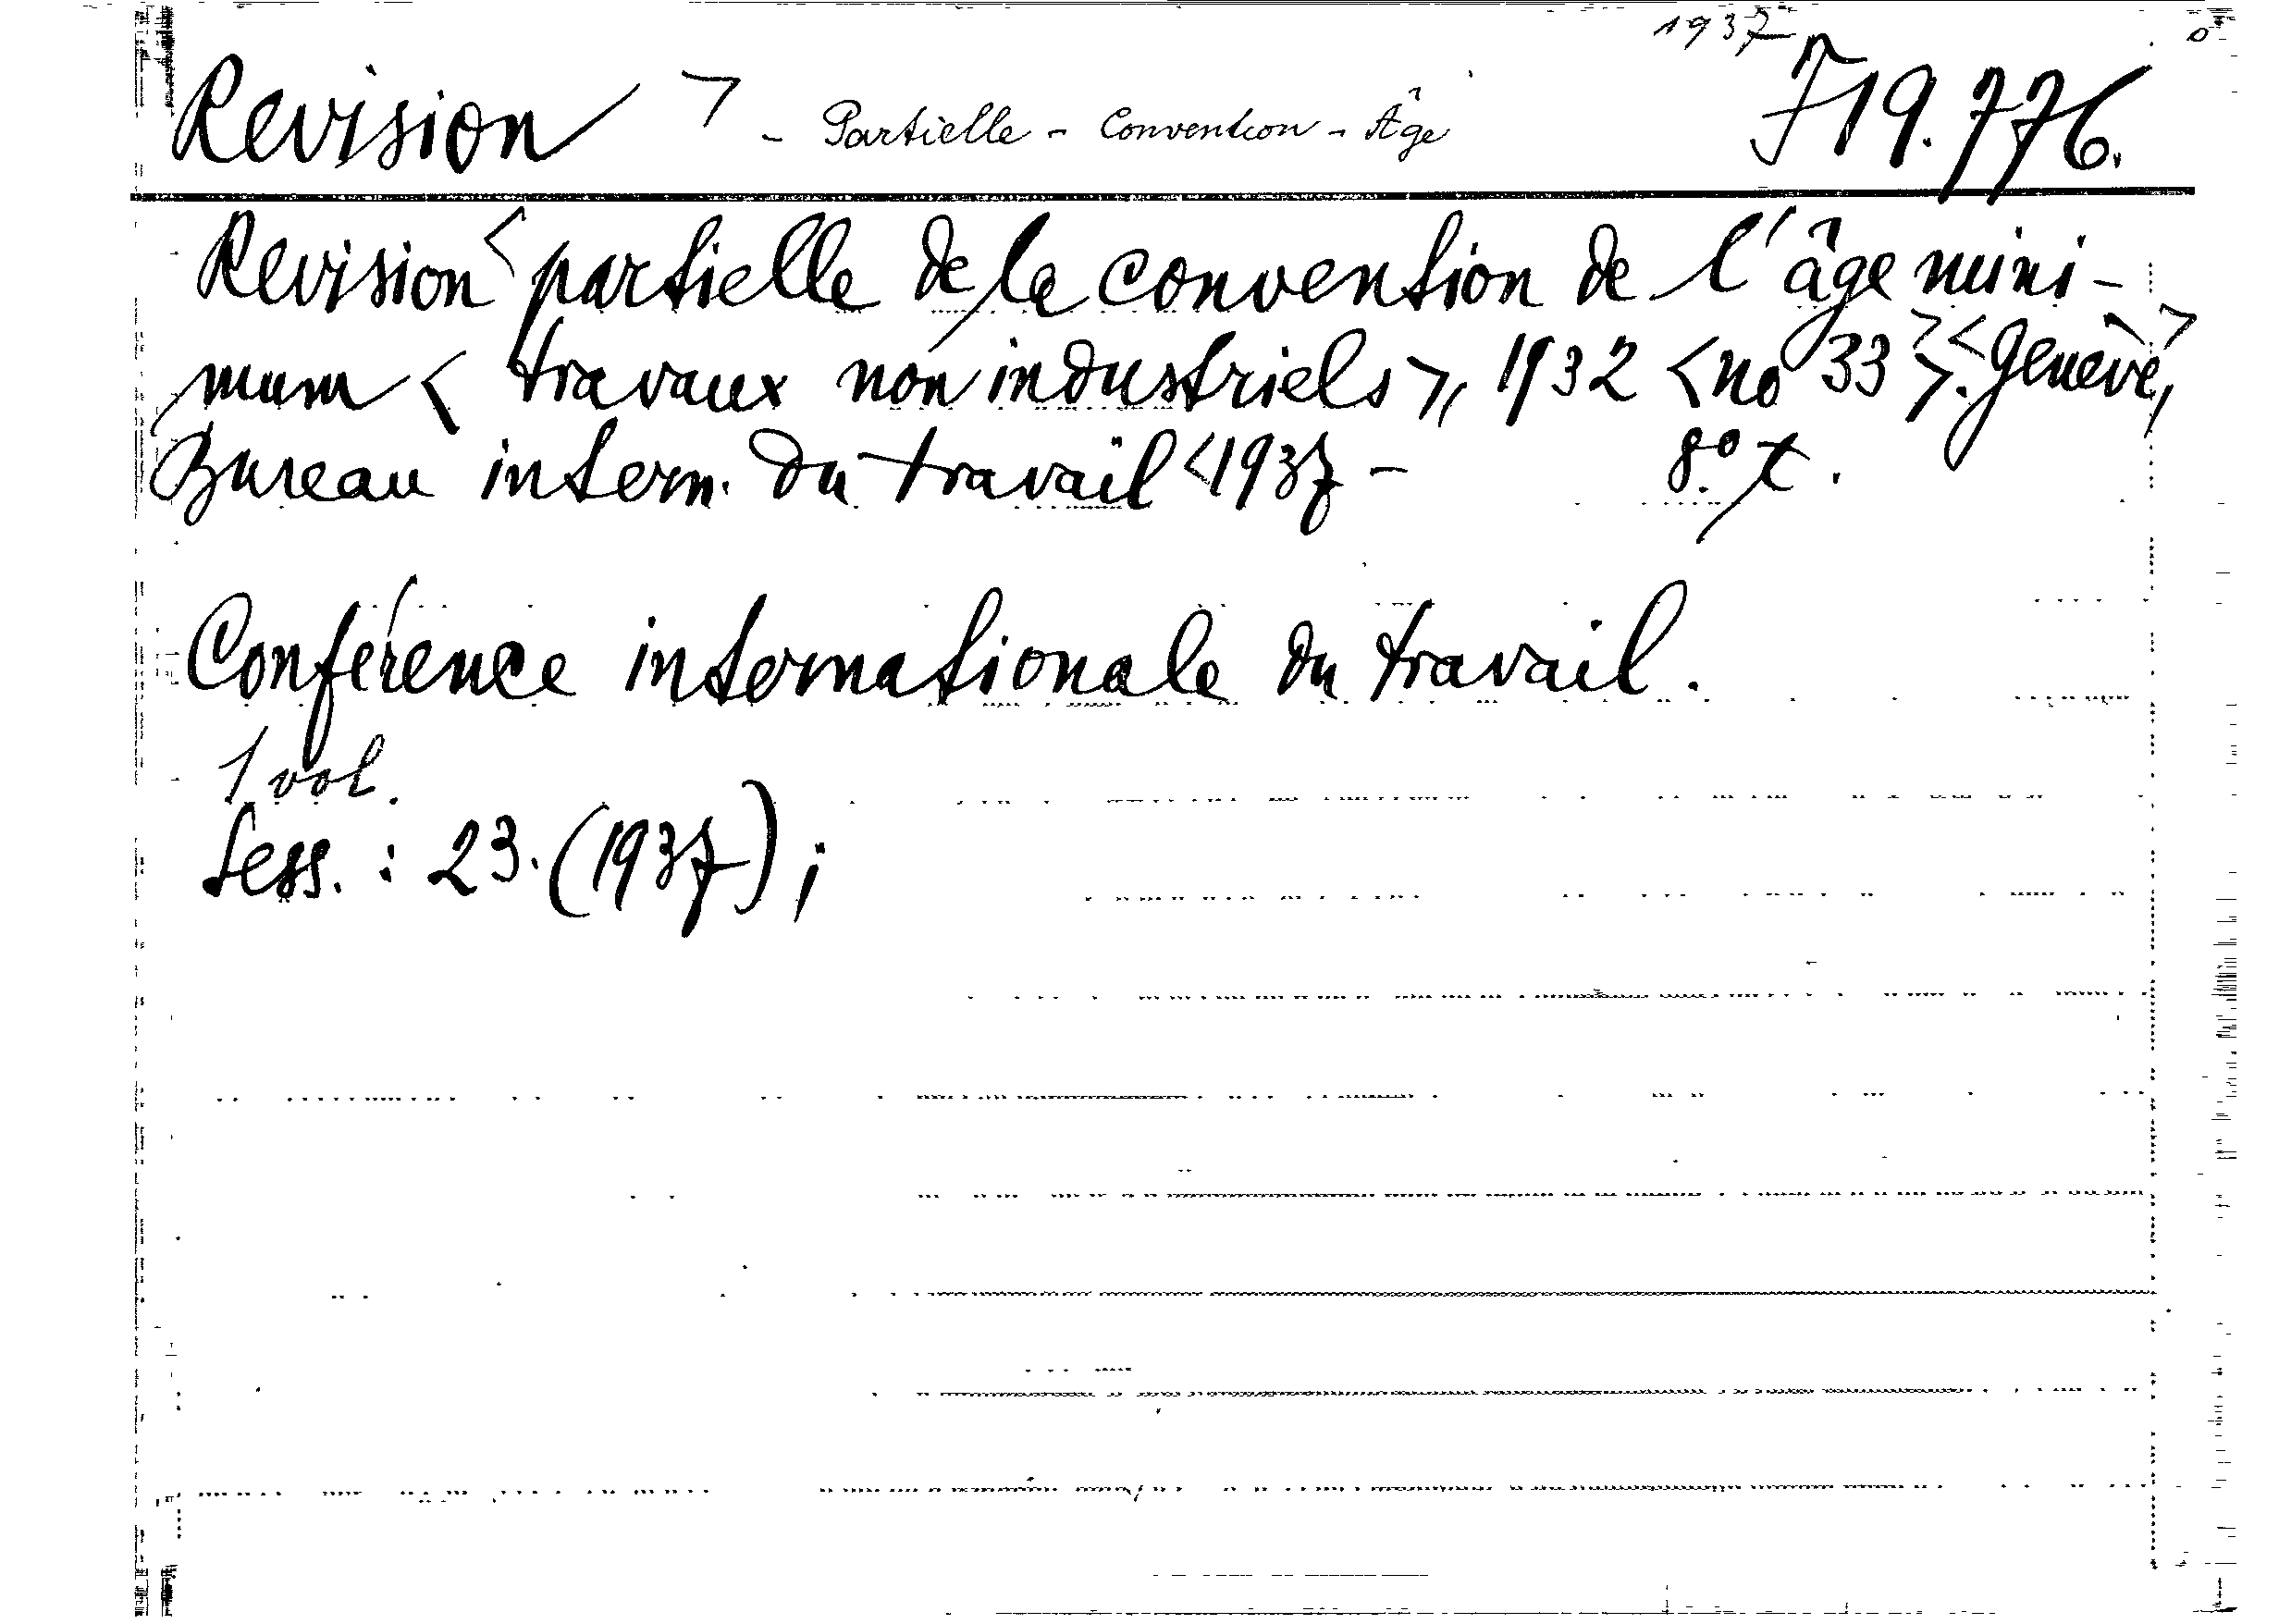 1937
Revision > - Partielle - Convention - Âge J 19.776.
Revision < partielle de la convention de l'âge mini-
mum < travaux non industriels >, 1932 < no 33 > >. < Genève, >
Bureau intern. du travail < 1937 - 8° t.
Conférence internationale du travail.
1 vol.
Sess. : 23. (1937) ;